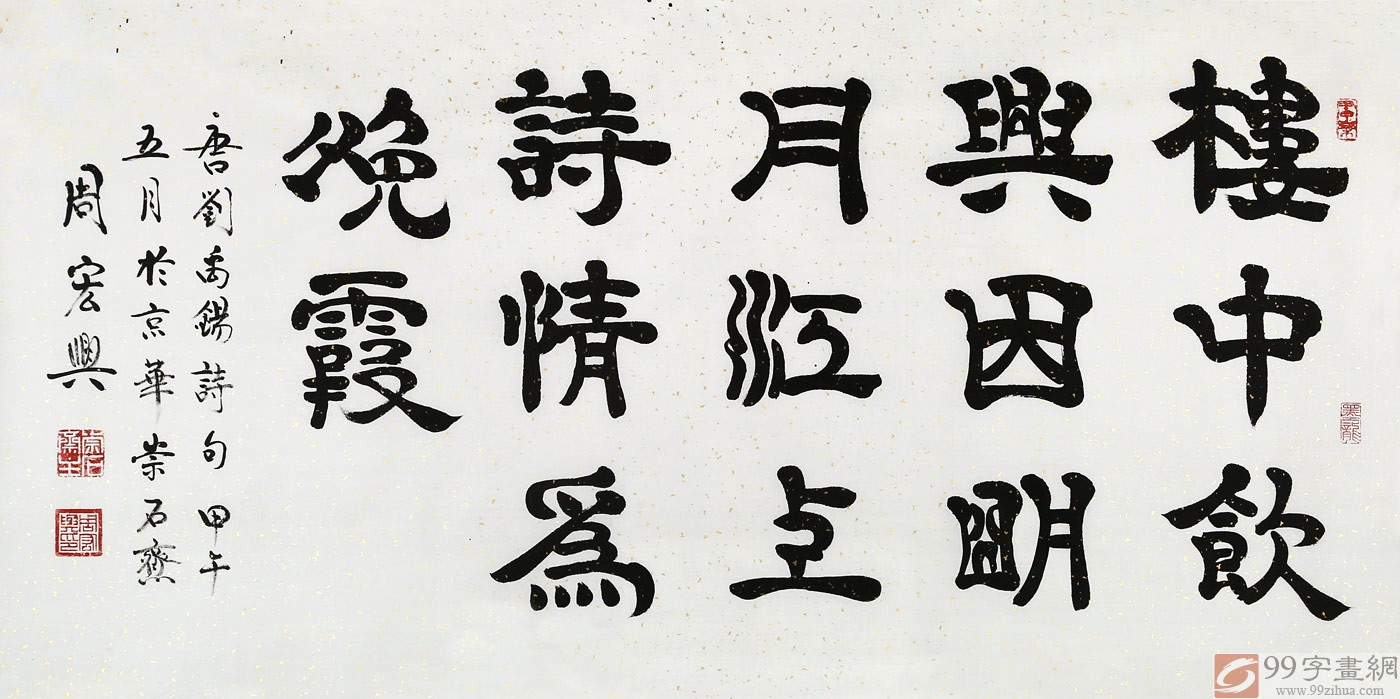 樓中飲
興因明
月江上
詩情爲
晚霞
唐劉禹錫詩句甲午
五月於京華崇石齋
周宏興
99字畫網
www.99zihua.com